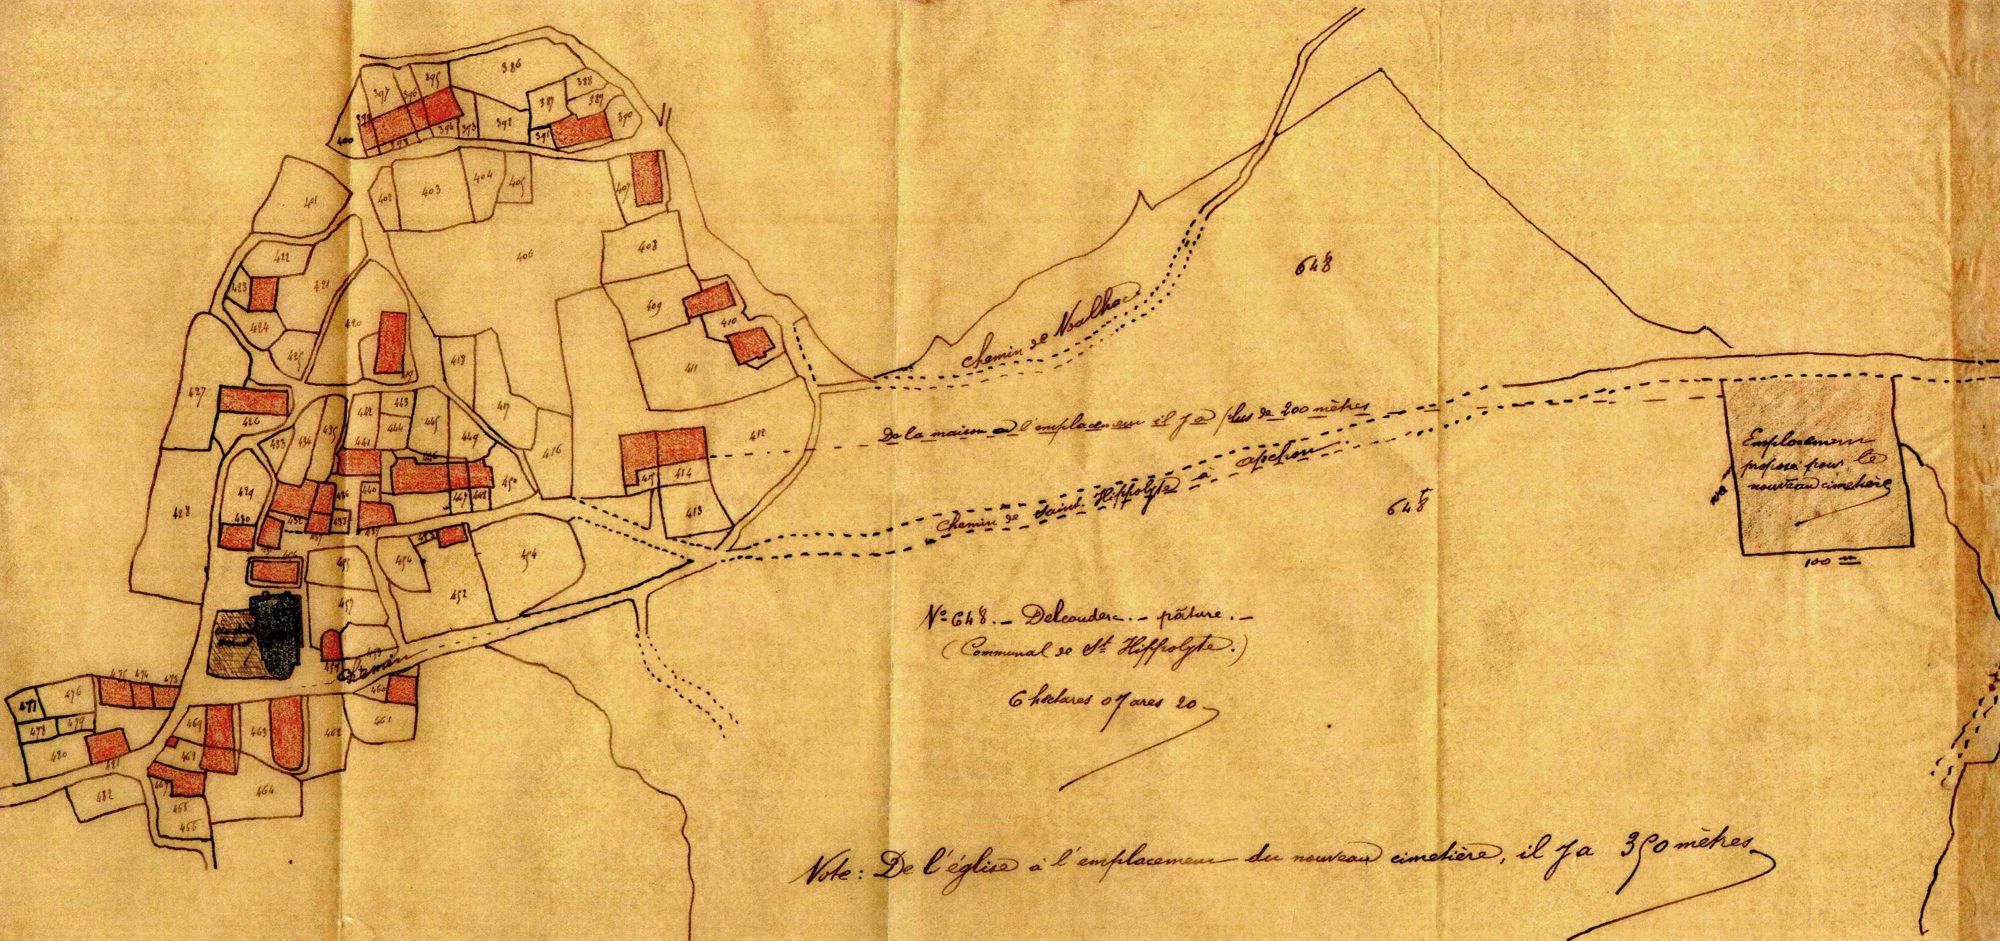 386
395
388
397
396
387
387
398
390
392
394
393
391
400
393
404
405
403
407
402
401
408
406
422
421
423
409
410
420
424
425
418
419
411
427
417
443
442
445
426
444
412
435
434
433
449
441
416
446
414
415
429
450
440
436
447
448
428
413
430
432
438
437
453
454
454
455
452
457
459
458
460
461
475
474
473
476
477
469
463
462
479
478
480
468
481
467
464
482
465
466
648
Chemin de Valhac
De la maison à l'emplacement il y a plus de 200 mètres
Chemin de Saint Hippolyte à Apchon
648
Emplacement
proposé pour le
nouveau cimetière
100 m
100 m
Chemin
N° 648. - Delcouderc. - pâture. -
(Communal de St Hippolyte.)
6 hectares 07 ares 20
Note: De l'église à l'emplacement du nouveau cimetière, il y a 350 mètres